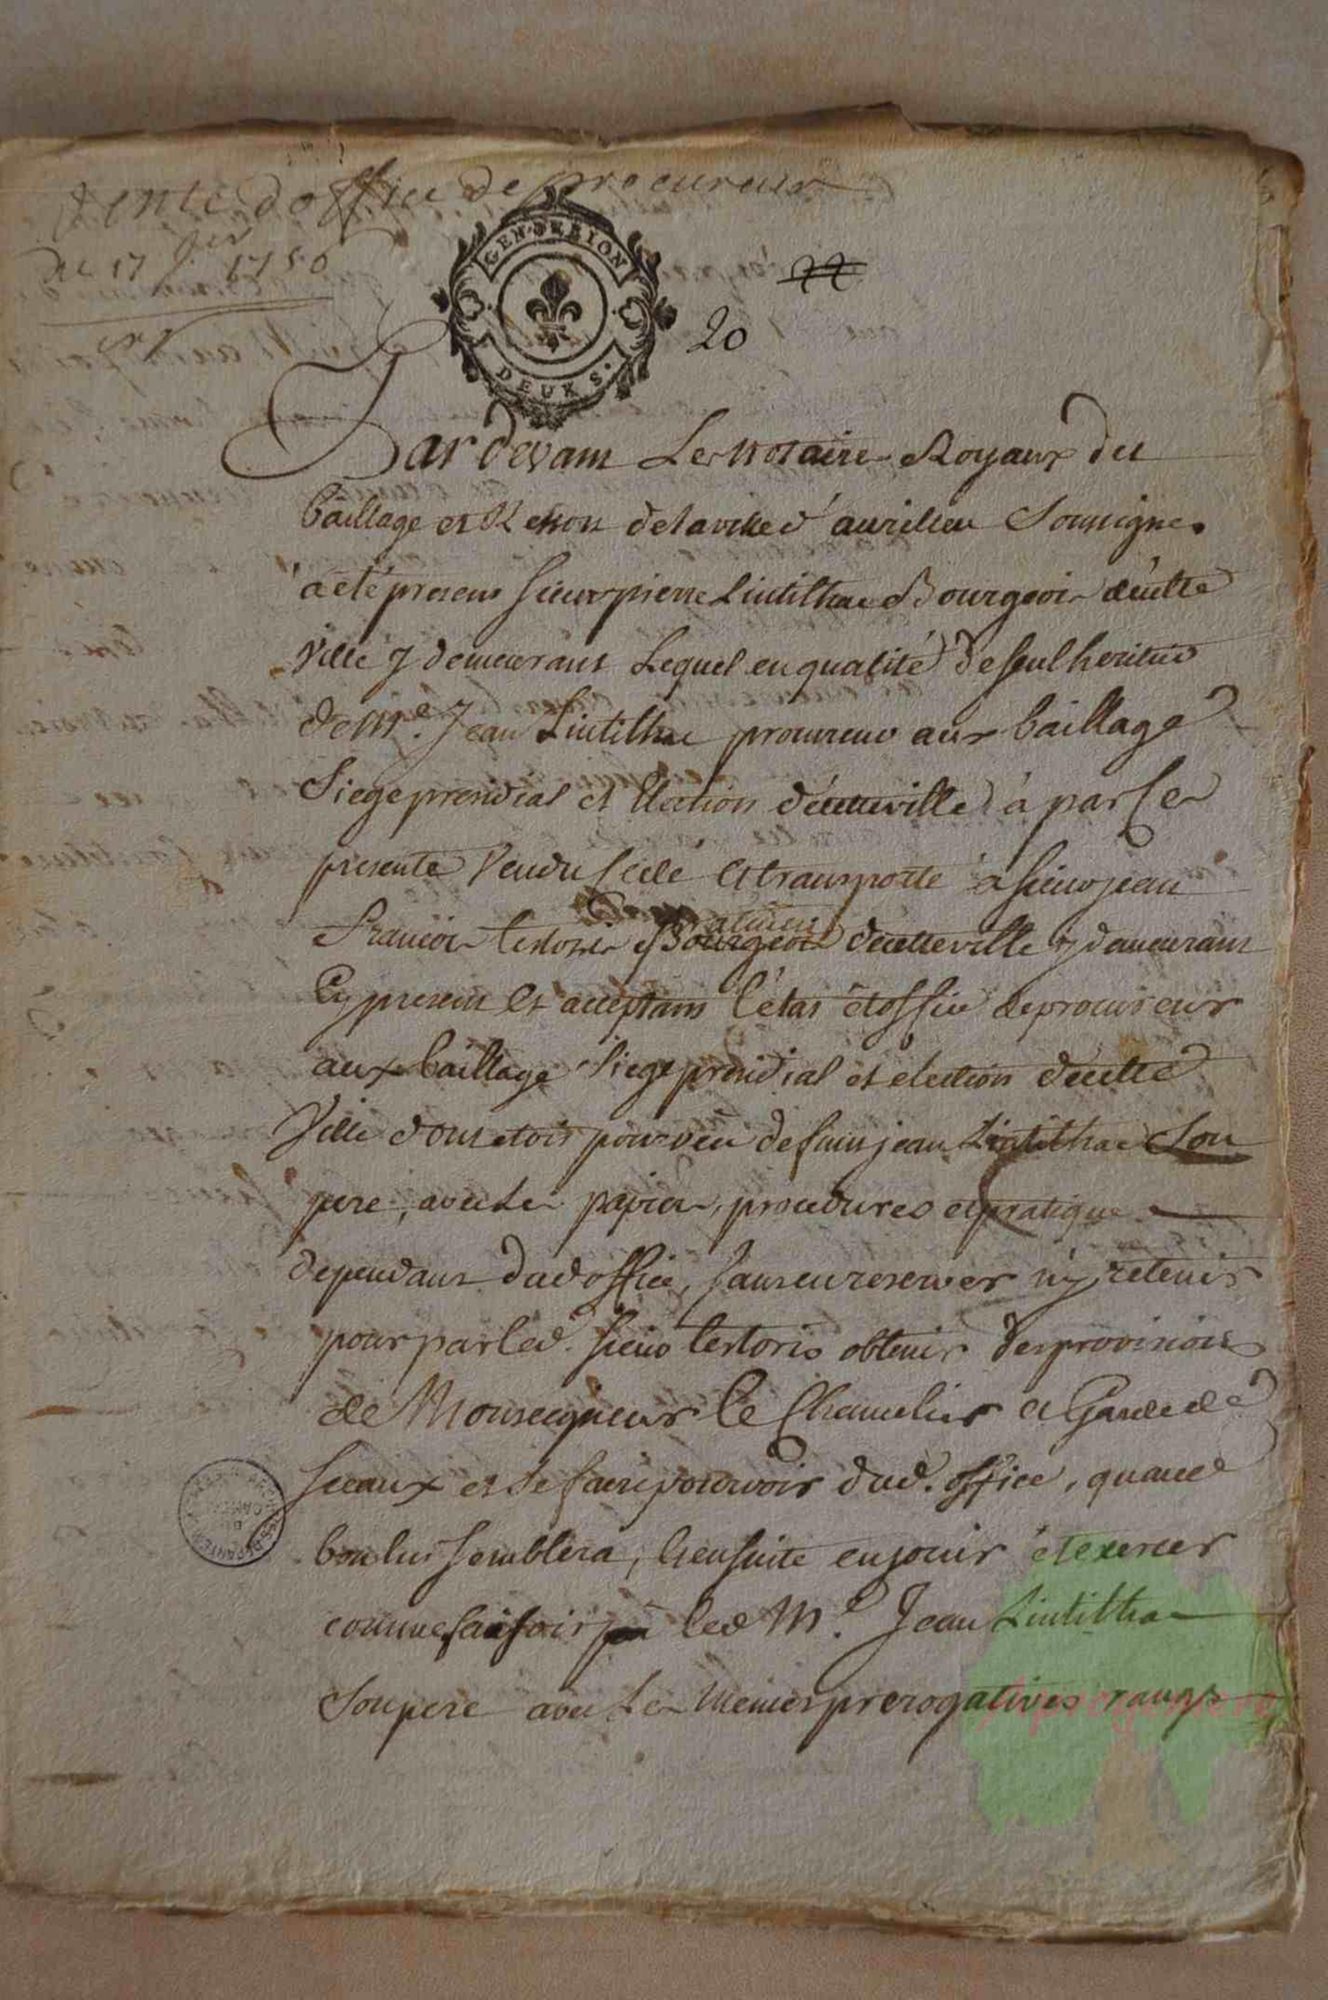 Vente d'office de procureur
du 17 Jer 1750
GEN·DE RION
DEUX S.
22
20
Pardevant Les Notaires Royaux du
baillage et Reson de la ville d'aurillieu Soussignes
a été presens sieur pierre Lintilhac Bourgeois decette
Ville y demeurant Lequel en qualité de seul heritier
de Me. Jean Lintilhac procureur aux baillage
Siege presidial et Election decetteville à par Ces
presente Vendu Cedé et transporté a sieur jean
François testoris Bourgeois decetteville y demeurant
Cy present et acceptant l'etat et office de procureur
aux baillage Siege presidial et election decette
Ville dont etoit pourveu defunt jean Lintilhac Son
pere, avec les papiers, procedures et pratique
dependant dud office, sans en reserver n'y retenir
pour par led. sieur testoris obtenir des provisions
de Monseigneur le Chancelier et Garde de
sceaux et se faire pourvoir dud. office, quand
bon lui semblera, Ensuite en jouir et exercer
comme faisoit led Me. Jean Lintilhac
Son pere avec Les memes prerogatives rangs